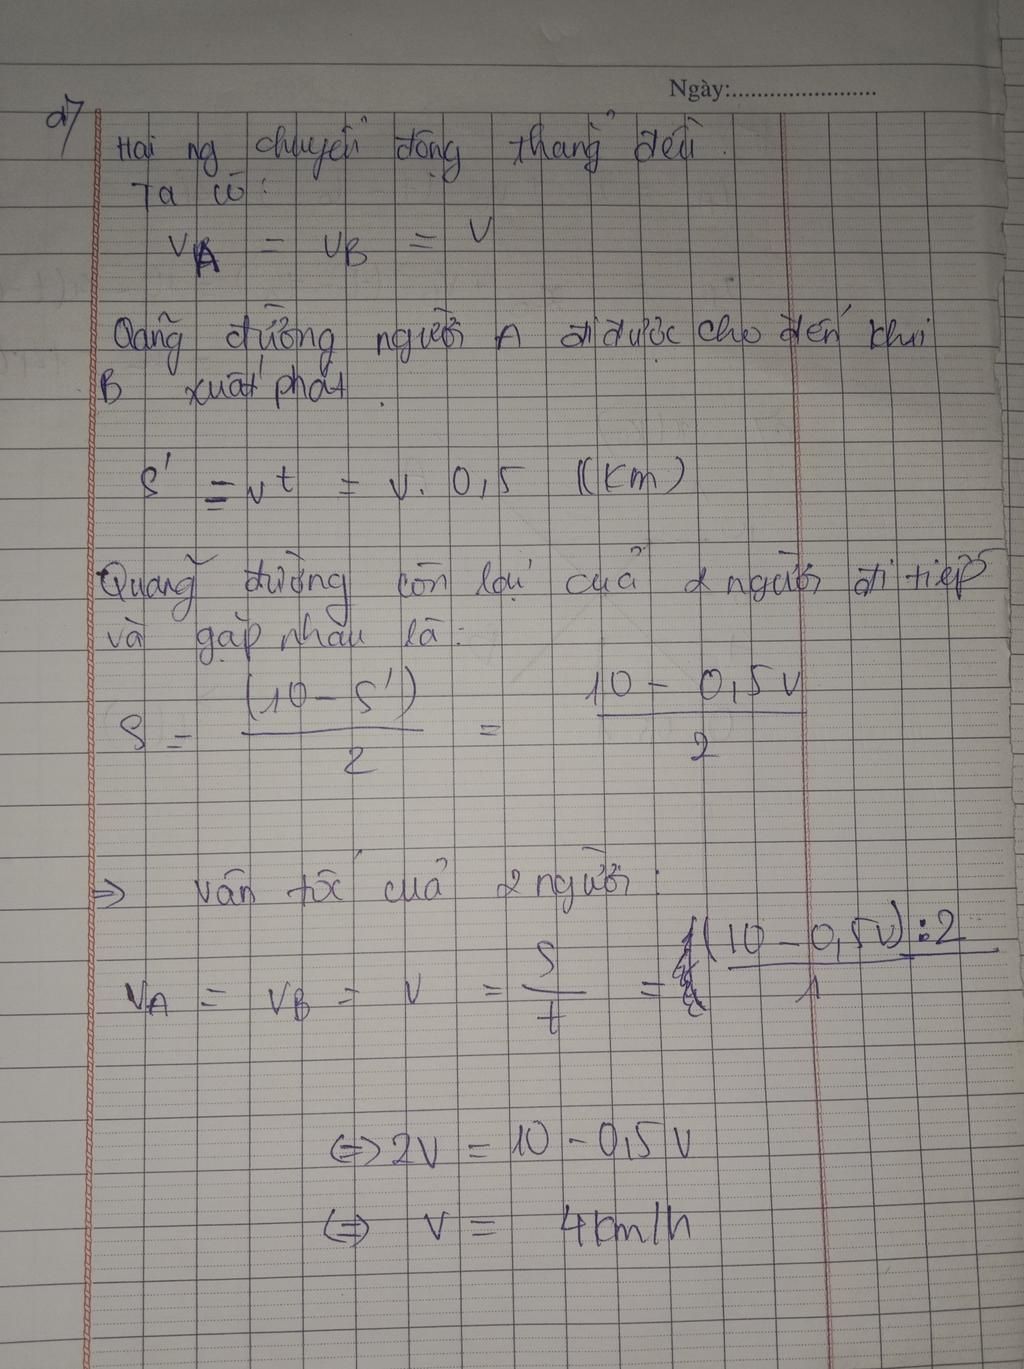 Ngày:........................
a7
Hai ng chuyển động thẳng đều.
Ta có:
VA = VB = V
Oãng đường người A đi được cho đến khi
B xuất phát.
S' = vt = v. 0,5 (km)
Quãng đường còn lại của 2 người đi tiếp
và gặp nhau là:
S = (10 - S') / 2 = 10 - 0,5V / 2
=> vân tốc của 2 người:
VA = VB = V = S / t = (10 - 0,5V) : 2 / 1
<=> 2V = 10 - 0,5V
<=> V = 4km/h